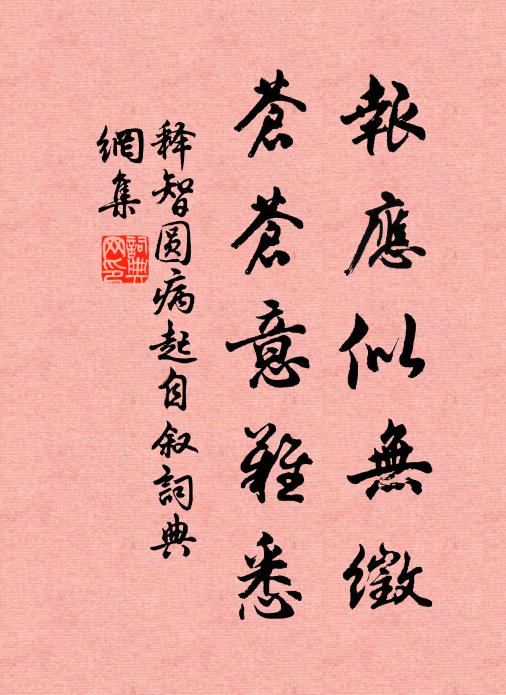 報應似無徵
蒼蒼意難悉
释智圆病起自叙詞典
網集
詞典
网印